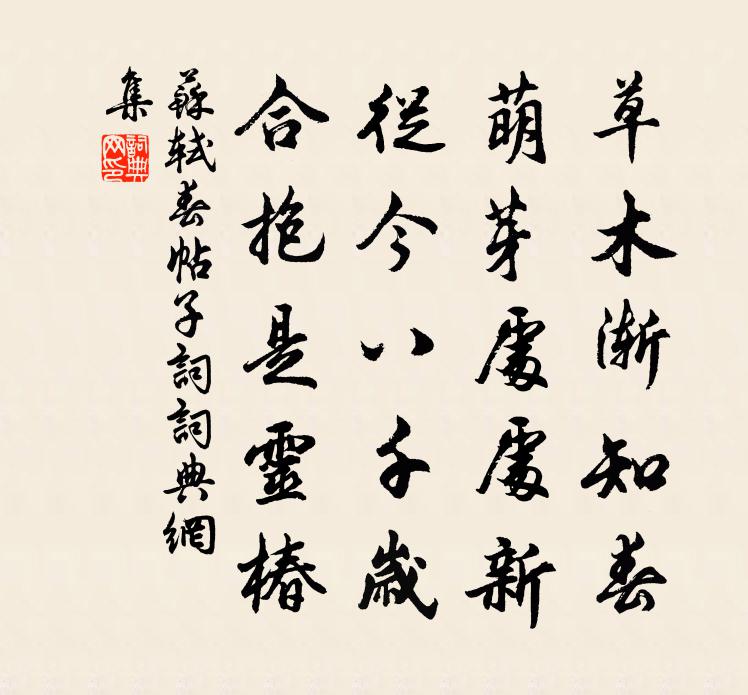 草木漸知春
萌芽處處新
從今八千歲
合抱是靈椿
蘇軾春帖子詞詞典網
集
詞典網印